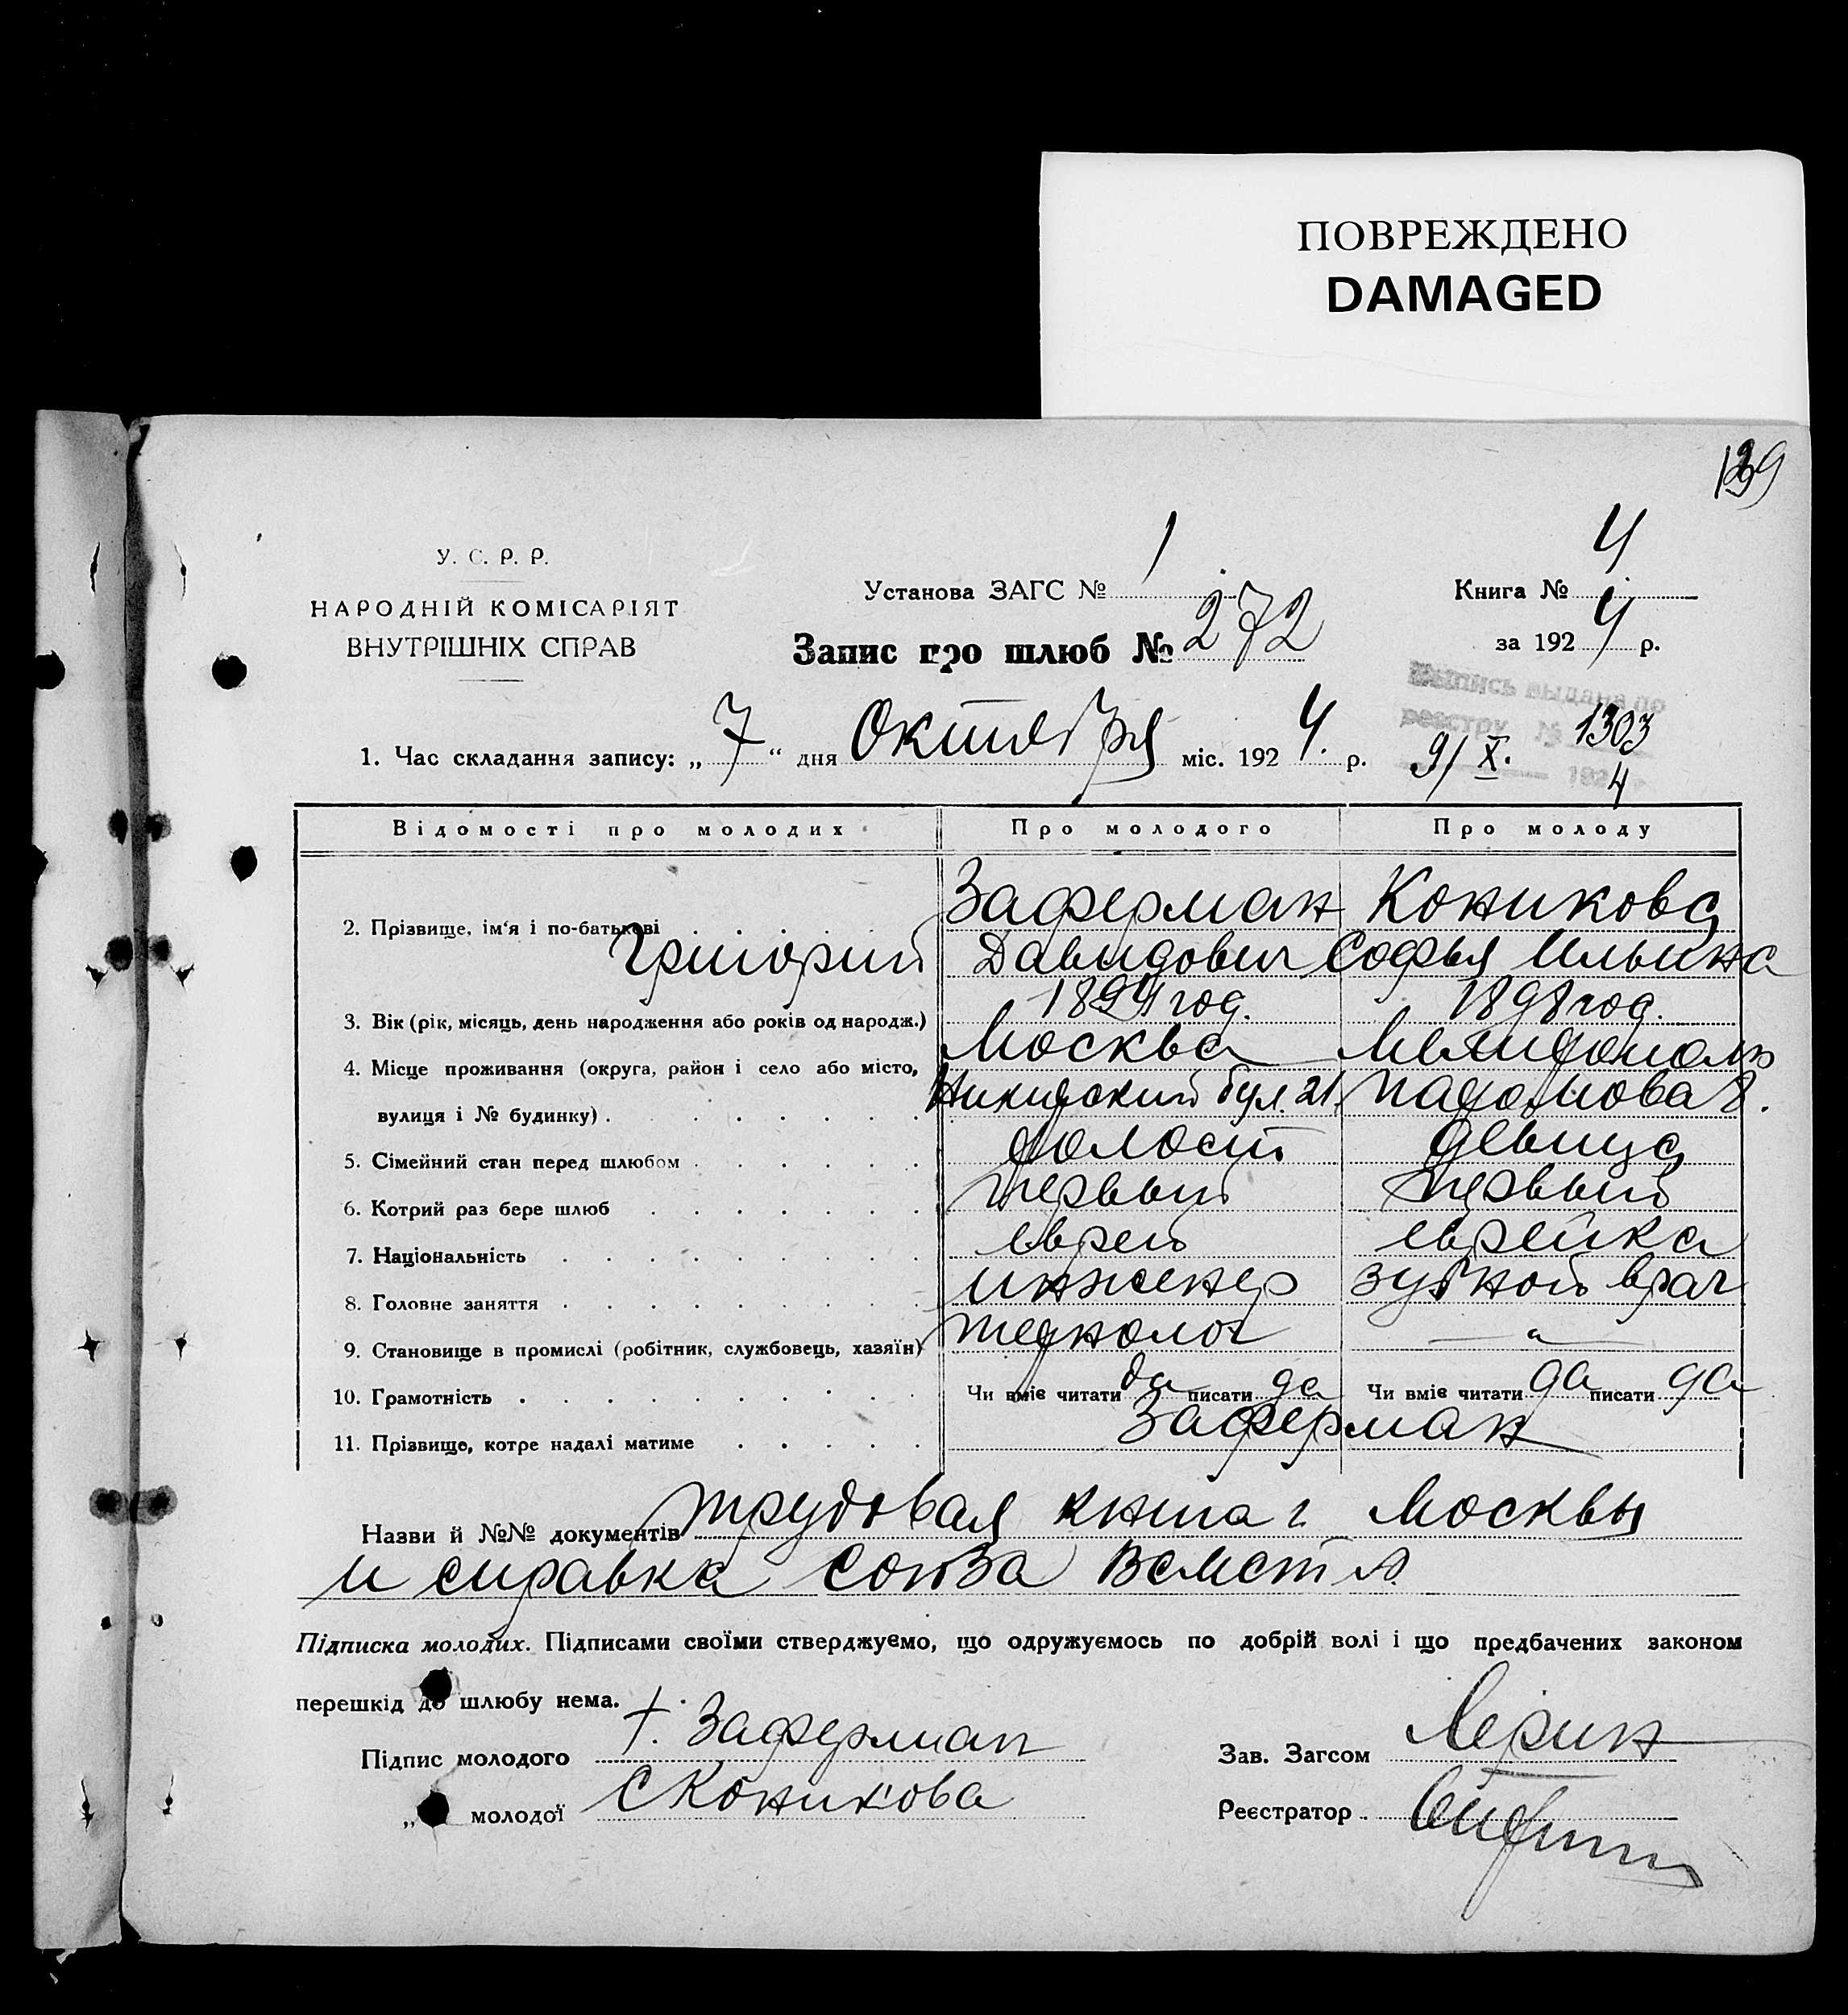 ПОВРЕЖДЕНО
DAMAGED
У. С. Р. Р.
НАРОДНІЙ КОМІСАРІЯТ
ВНУТРІШНІХ СПРАВ
Установа ЗАГС № 1
Книга № 4
за 1924 р.
Запис про шлюб № 272
Выпись выдана по
реестру № 1303
9/X. 1924
1. Час складання запису: „7“ дня Октября міс. 1924. р.
Відомості про молодих Про молодого Про молоду
2. Прізвище, ім'я і по-батькові Заферман Коникова
Григорий Давидович Софья Ильина
3. Вік (рік, місяць, день народження або років од народж.) 1894 год. 1898 год.
4. Місце проживання (округа, район і село або місто, Москва Мелитополь
вулиця і № будинку) Никитский бул. 21. 8.
5. Сімейний стан перед шлюбом холост девица
6. Котрий раз бере шлюб первый первый
7. Національність еврей еврейка
8. Головне заняття инженер зубной врач
9. Становище в промислі (робітник, службовець, хазяїн) технолог — „ —
10. Грамотність Чи вміє читати да писати да Чи вміє читати да писати да
11. Прізвище, котре надалі матиме Заферман
Назви й №№ документів трудовая книга г. Москвы
и справка союза
Підписка молодих. Підписами своїми стверджуємо, що одружуємось по добрій волі і що предбачених законом
перешкід до шлюбу нема.
Підпис молодого Г. Заферман
Зав. Загсом
„ молодої С Коникова
Реєстратор